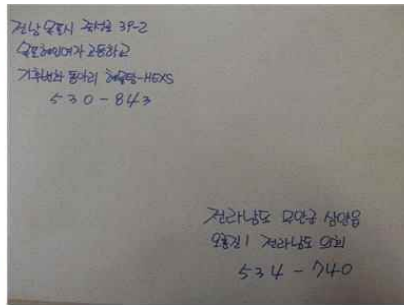 전남 목포시 죽석로 39-2
목포혜인여자고등학교
기후변화 동아리 해울림-HEXS
530-843
전라남도 무안군 삼향읍
오룡길1 전라남도 의회
534-740